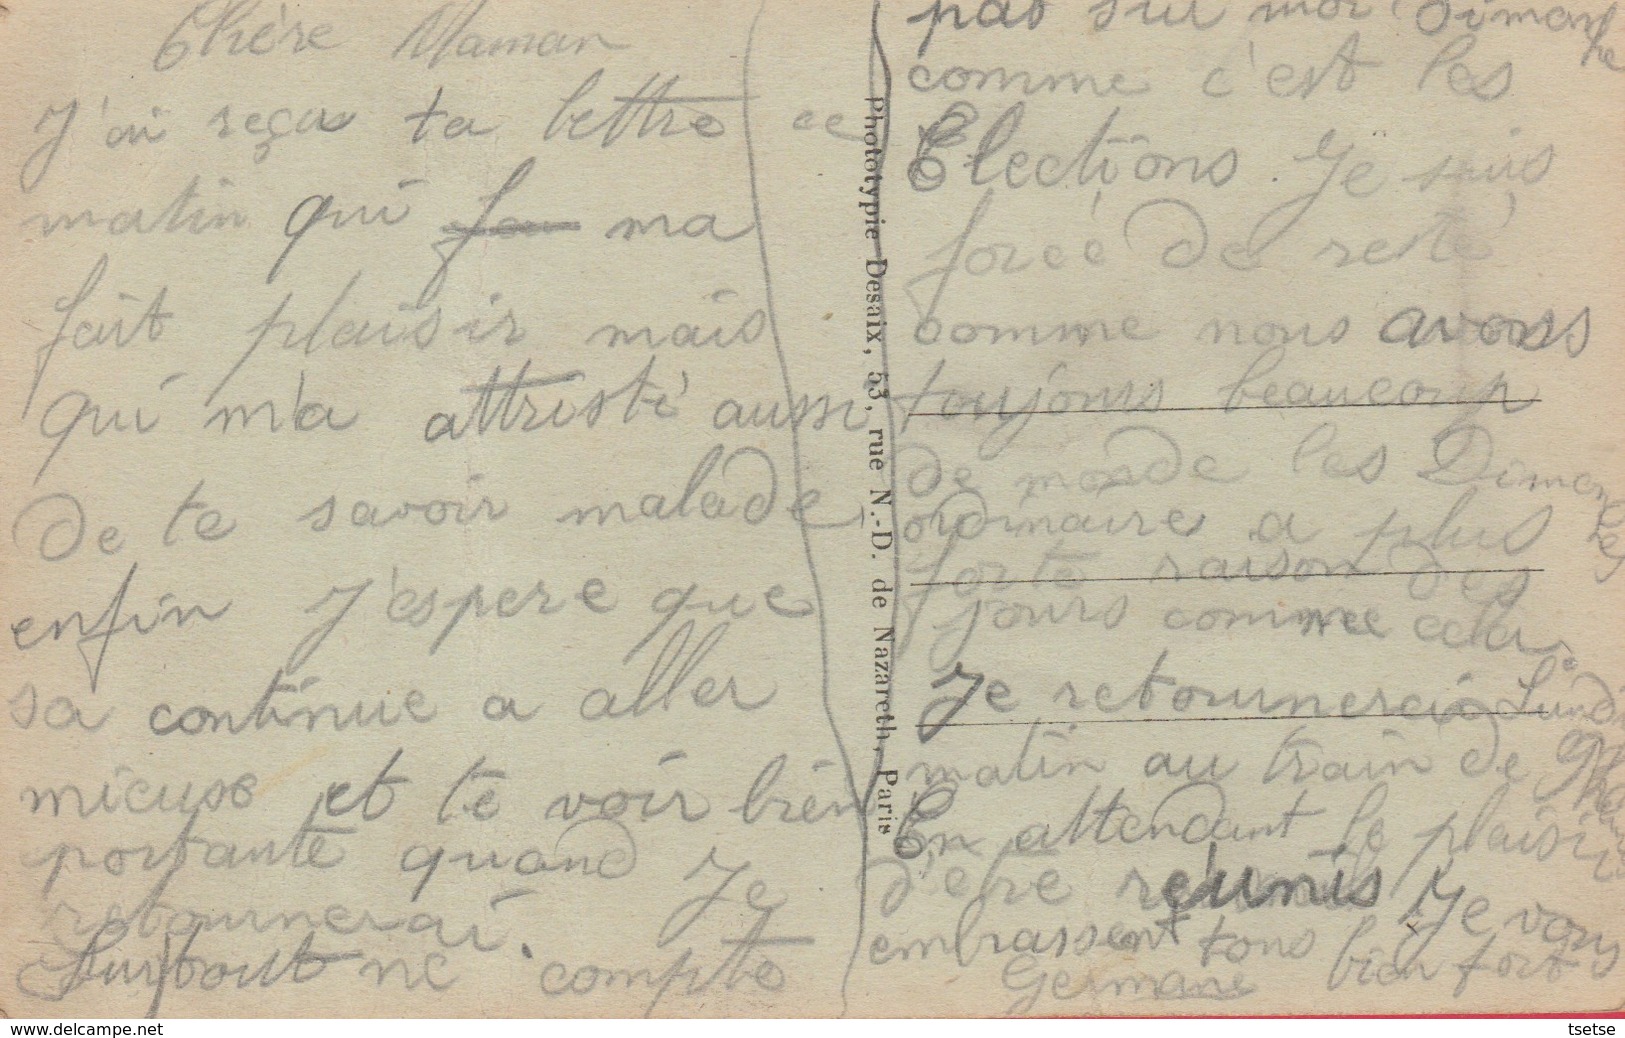 Chère Maman
J'ai reçu ta lettre ce
matin qui ma
fait plaisir mais
qui m'a attristé aussi
de te savoir malade
enfin J'espere que
sa continue a aller
mieuse et te voir bien
portante quand Je
retournerai.
Surtout ne compte
pas sur moi Dimanche
comme c'est les
Elections. Je suis
forcé de resté
comme nous avons
toujours beaucoup
de monde les Dimenches
ordinaires a plus
forte raison des
jours comme cela.
Je retournerai Lundi
matin au train de 9
En attendant le plaisir
d'être réunis Je vous
embrassent tous bien fort
Germane
Phototypie Desaix, 53, rue N.-D. de Nazareth, Paris
www.delcampe.net
tsetse